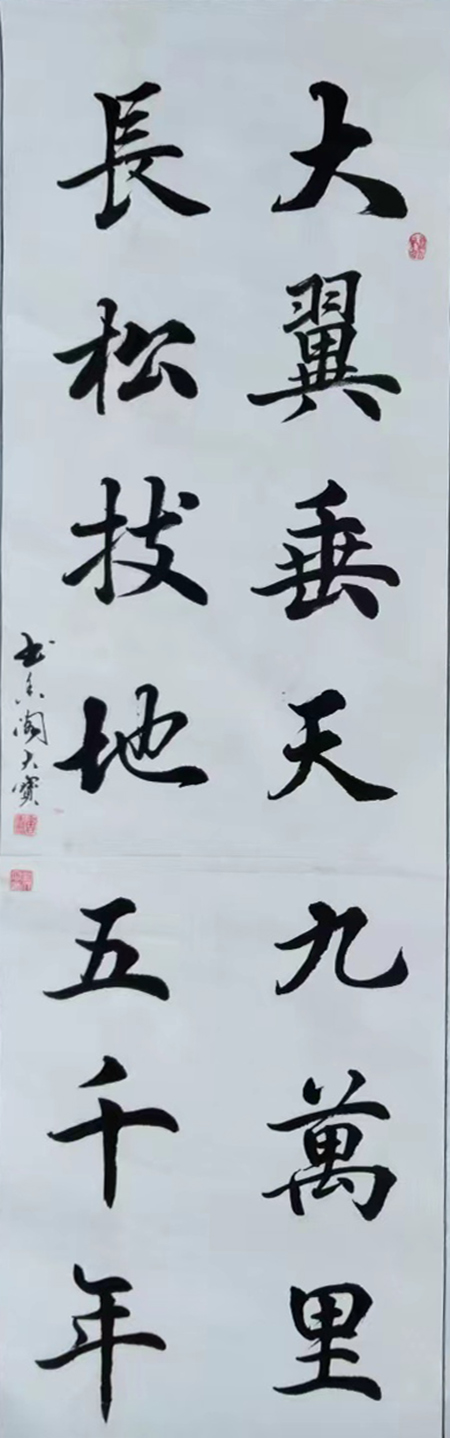 大翼垂天九萬里
長松拔地五千年
書香閣大寶